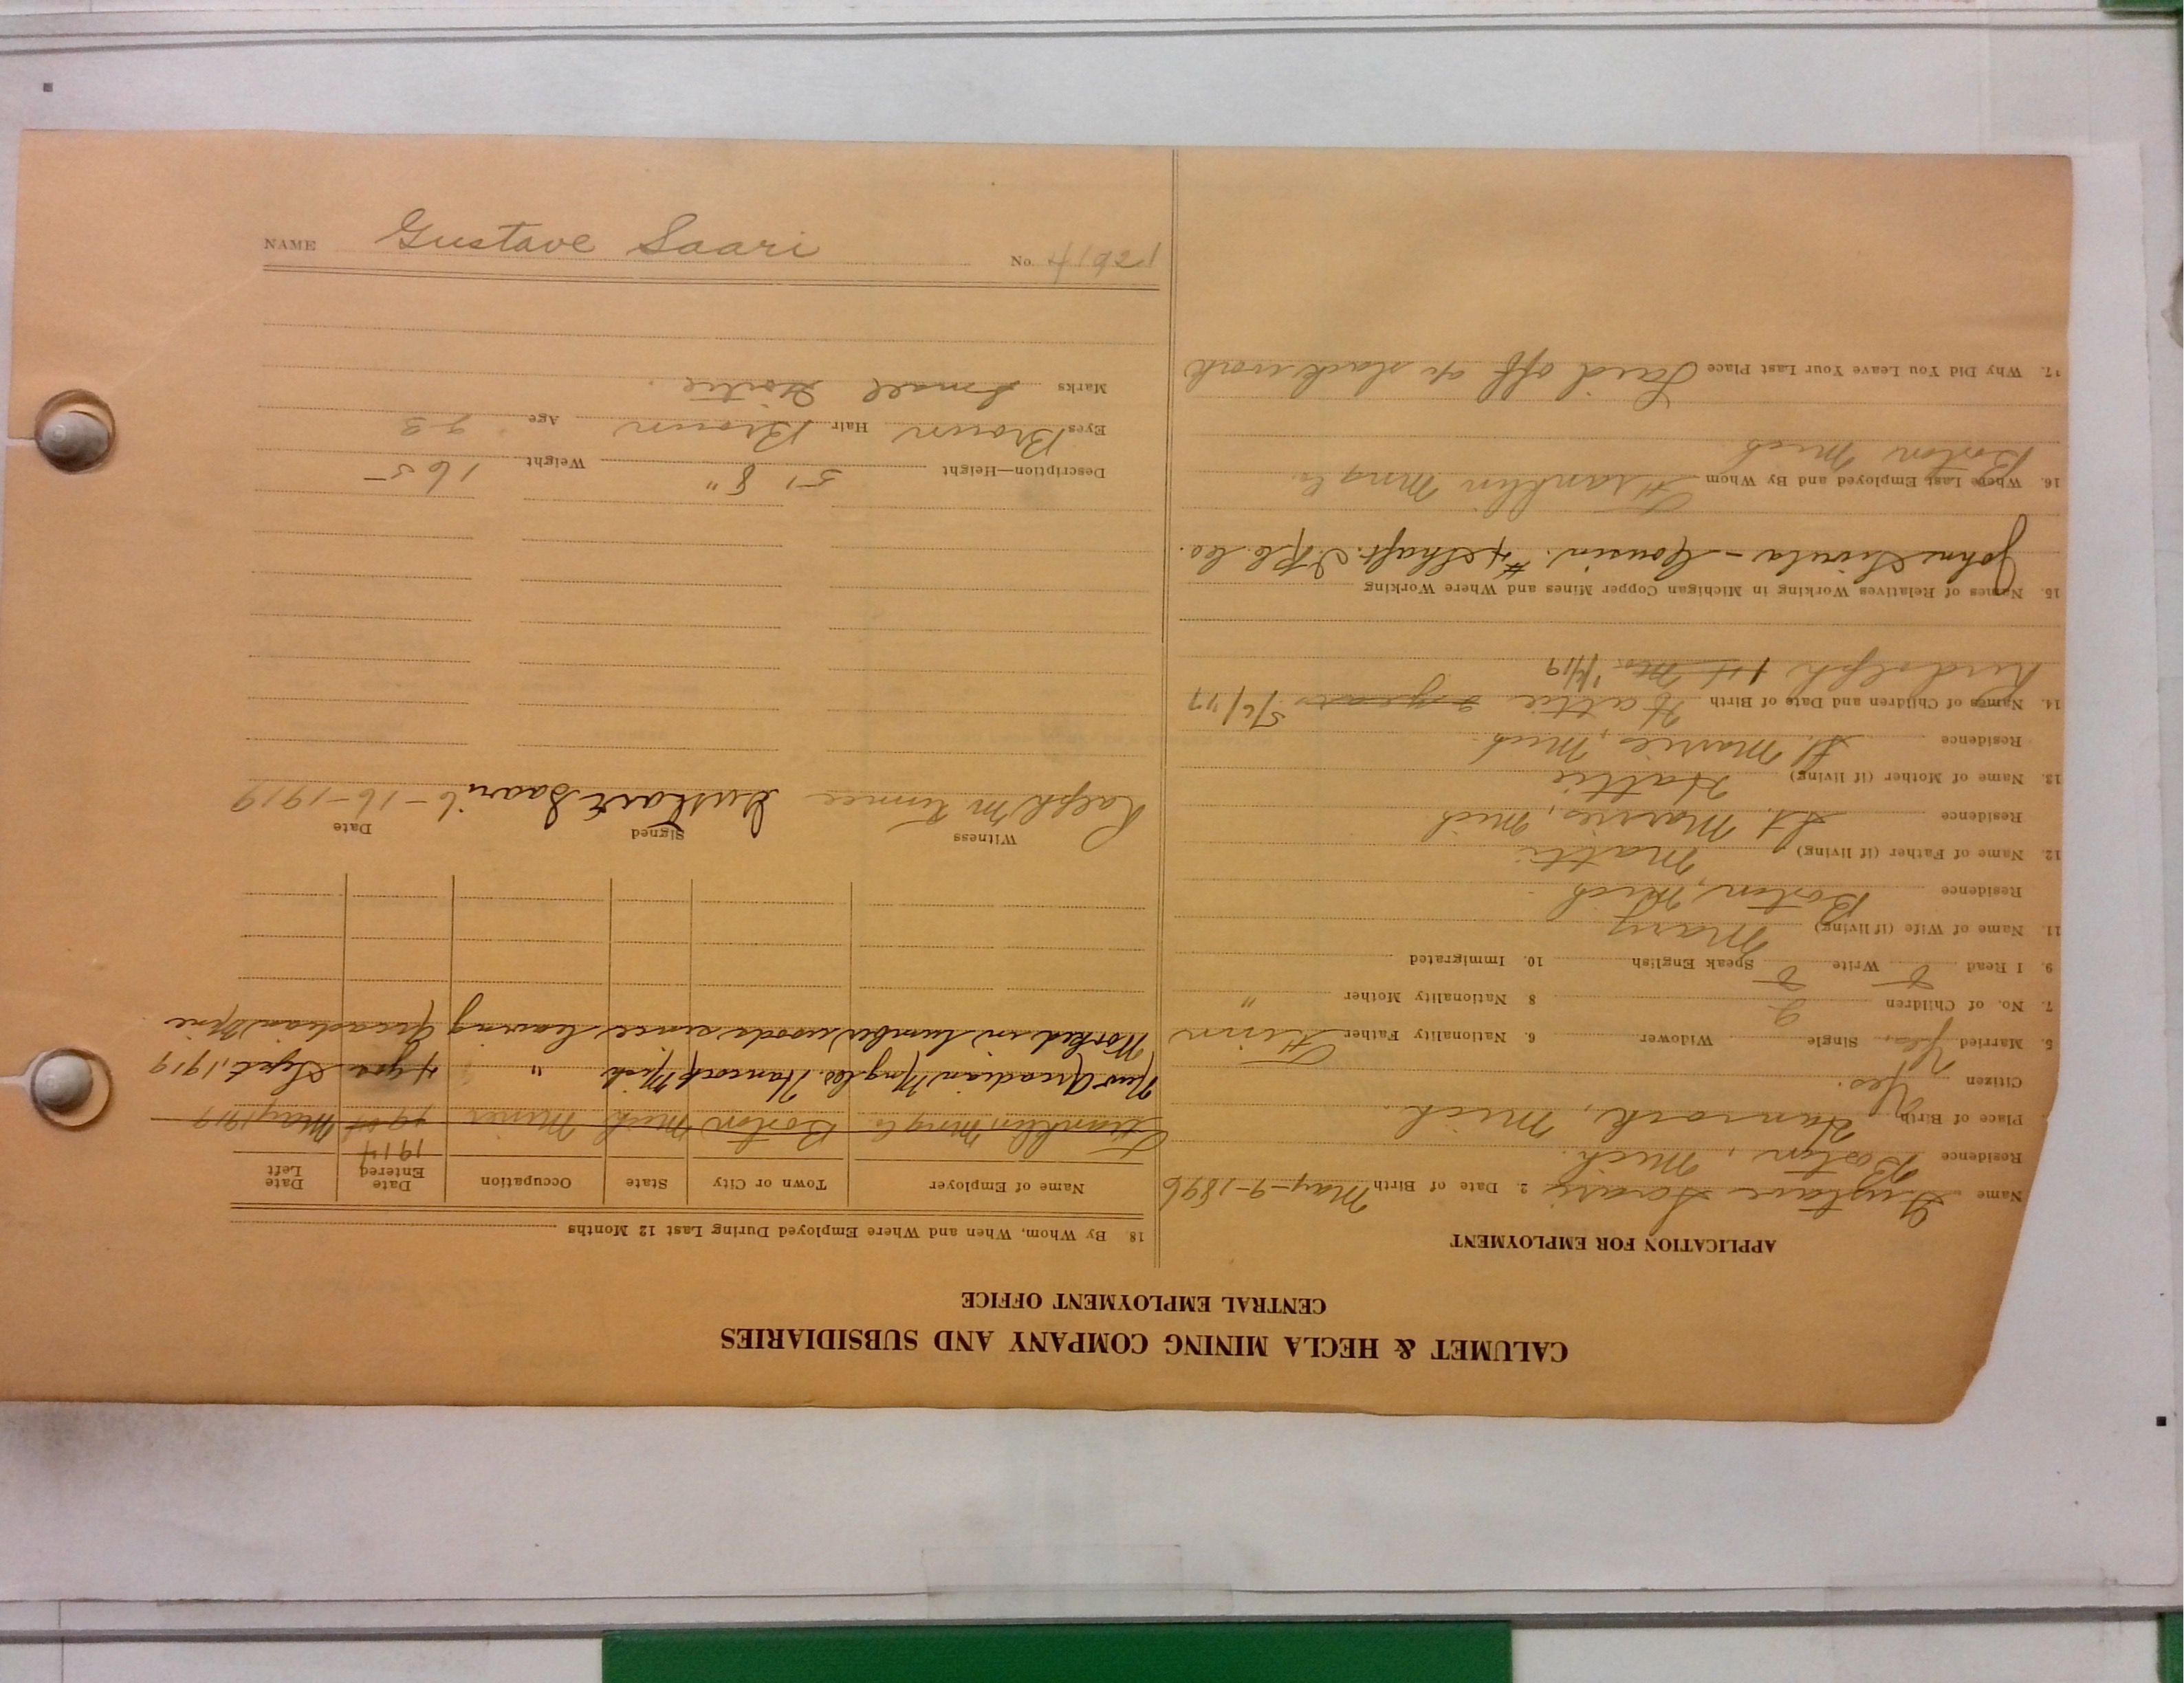 CALUMET & HECLA MINING COMPANY AND SUBSIDIARIES
CENTRAL EMPLOYMENT OFFICE
APPLICATION FOR EMPLOYMENT
Name Gustave Saari 2. Date of Birth May-9-1896
Residence Boston, Mich.
Place of Birth Hancock, Mich.
Citizen Yes.
5. Married Yes. Single Widower 6. Nationality Father Finn
7. No. of Children 2 8 Nationality Mother "
9. I Read Write Speak English 10. Immigrated
11. Name of Wife (if living) Mary
Residence Boston, Mich.
12. Name of Father (if living) Matti
Residence St. Marries, Mich.
13. Name of Mother (if living) Hattie
Residence St. Marries, Mich.
14. Names of Children and Date of Birth Hattie 2 years 5/6/17
Rudolph 1 1/4/19
15. Names of Relatives Working in Michigan Copper Mines and Where Working
John - Cousin. #4 Shaft.
16. Where Last Employed and By Whom Franklin Mng Co.
Boston Mich
17. Why Did You Leave Your Last Place Laid off a/c slack work
18. By Whom, When and Where Employed During Last 12 Months
Name of Employer Town or City State Occupation Date Entered Date Left
Franklin Mng Co Boston Mich Miner 1914 May 1919
New Arcadian Mng Co. Hancock Mich " 4 yrs Sept. 1919
Worked in lumber woods since leaving Arcadian Mine
Witness Signed Date
Ralph M Gustave Saari 6-16-1919
Description—Height 5' 8" Weight 165
Eyes Brown Hair Brown Age 23
Marks Small Goitre.
NAME Gustave Saari No. 41921